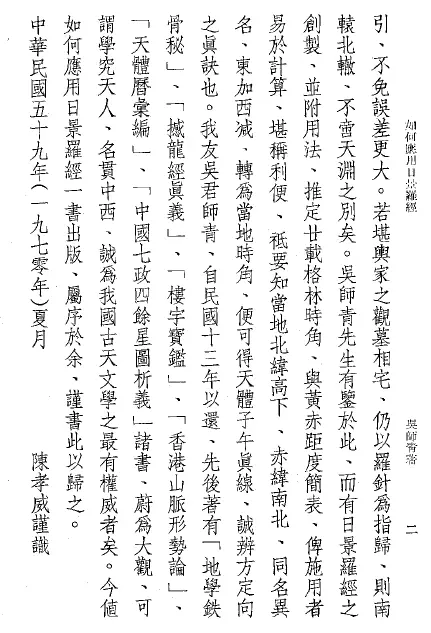 如何應用日景羅經
吳師青著
二
引、不免誤差更大。若堪輿家之觀墓相宅、仍以羅針為指歸、則南
轅北轍、不啻天淵之別矣。吳師青先生有鑒於此、而有日景羅經之
創製、並附用法、推定廿載格林時角、與黃赤距度簡表、俾施用者
易於計算、堪稱利便、祗要知當地北緯高下、赤緯南北、同名異
名、東加西減、轉為當地時角、便可得天體子午眞線、誠辨方定向
之眞訣也。我友吳君師青、自民國十三年以還、先後著有「地學鉄
骨秘」、「撼龍經眞義」、「樓宇寶鑑」、「香港山脈形勢論」、
「天體曆彙編」、「中國七政四餘星圖析義」諸書、蔚為大觀、可
謂學究天人、名貫中西、誠為我國古天文學之最有權威者矣。今値
如何應用日景羅經一書出版、屬序於余、謹書此以歸之。
中華民國五十九年(一九七零年)夏月
陳孝威謹識